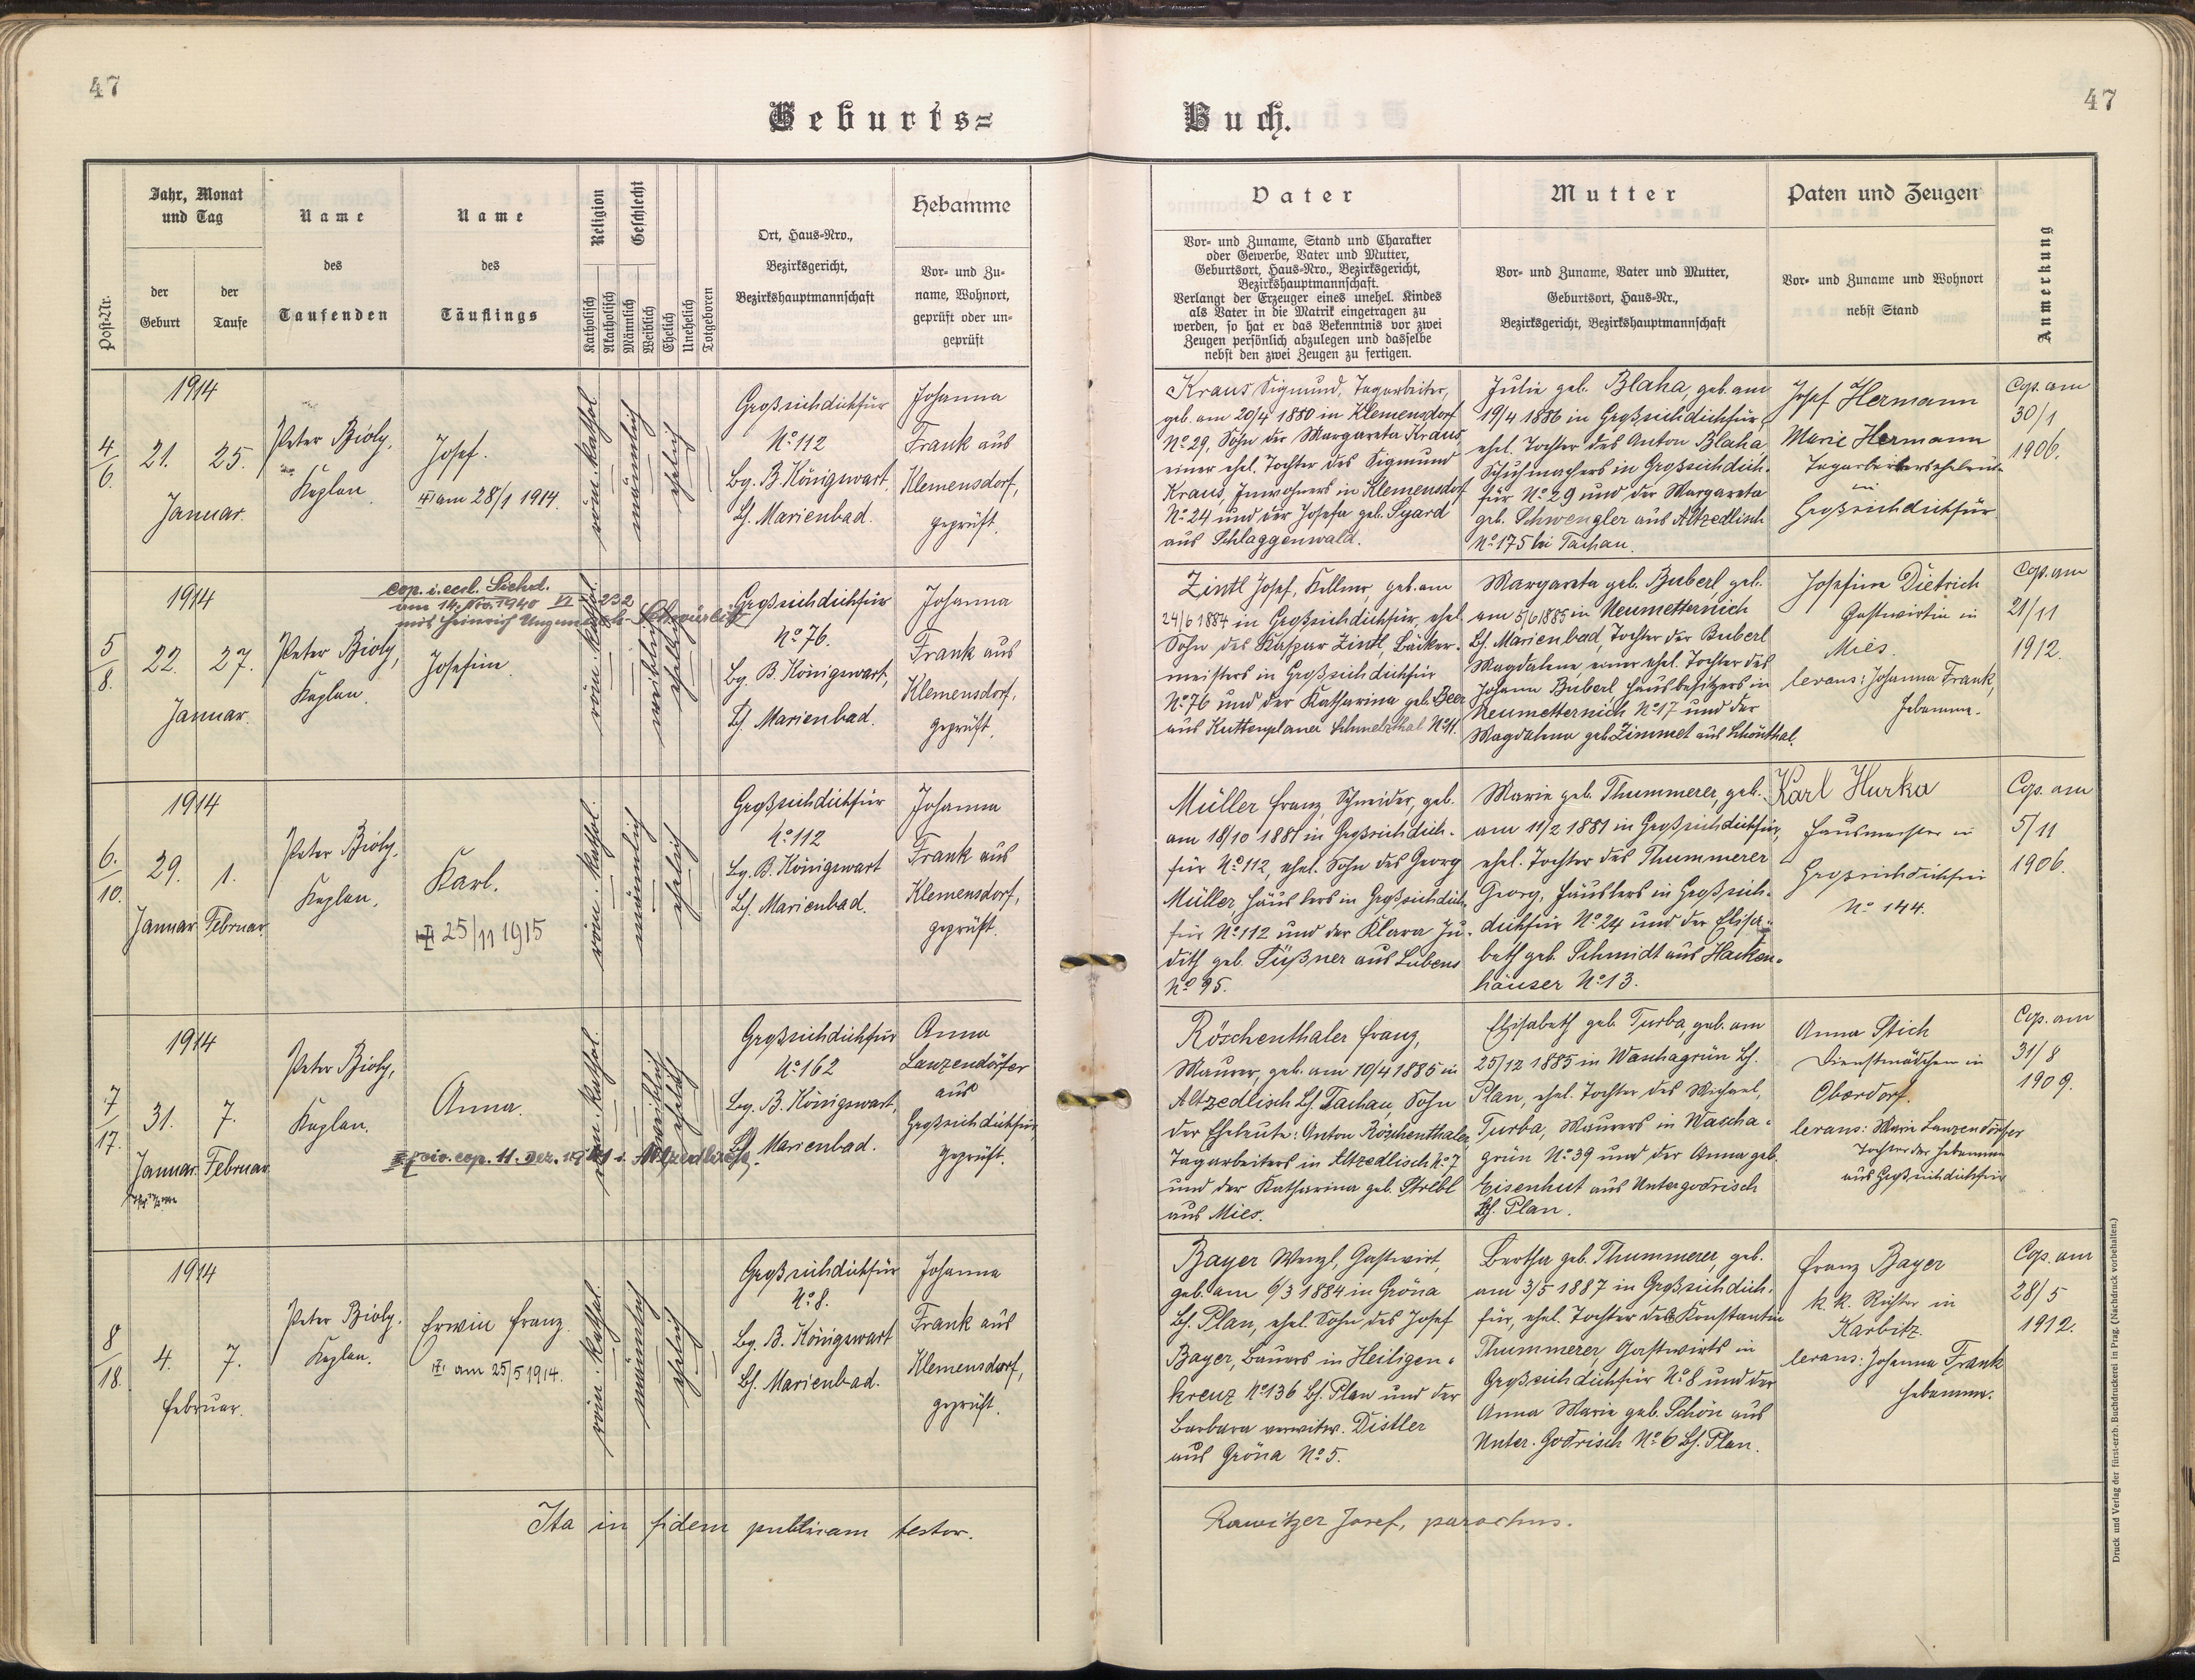 47
47
Geburts=
Buch.
Post-Nr.
Jahr, Monat
und Tag
der
Geburt
der
Taufe
Name
des
Taufenden
Name
des
Täuflings
Religion
Katholisch
Akatholisch
Geschlecht
Männlich
Weiblich
Ehelich
Unehelich
Totgeboren
Ort, Haus-Nro.,
Bezirksgericht,
Bezirkshauptmannschaft
Hebamme
Vor- und Zu-
name, Wohnort,
geprüft oder un-
geprüft
Vater
Vor- und Zuname, Stand und Charakter
oder Gewerbe, Vater und Mutter,
Geburtsort, Haus-Nro., Bezirksgericht,
Bezirkshauptmannschaft.
Verlangt der Erzeuger eines unehel. Kindes
als Vater in die Matrik eingetragen zu
werden, so hat er das Bekenntnis vor zwei
Zeugen persönlich abzulegen und dasselbe
nebst den zwei Zeugen zu fertigen.
Mutter
Vor- und Zuname, Vater und Mutter,
Geburtsort, Haus-Nr.,
Bezirksgericht, Bezirkshauptmannschaft
Paten und Zeugen
Vor- und Zuname und Wohnort
nebst Stand
Anmerkung
4/6.
1914
21. 25.
Januar.
Peter Bioly,
Kaplan.
Josef.
am 28/1 1914.
röm. kathol.
männlich
ehelich
Großsichdichfür
No 112
Bg. B. Königswart,
Bh. Marienbad.
Johanna
Frank aus
Klemensdorf,
geprüft.
Kraus Sigmund, Tagarbeiter,
geb. am 20/4 1880 in Klemensdorf
No 29, Sohn der Margareta Kraus,
einer ehel. Tochter des Sigmund
Kraus, Inwohners in Klemensdorf
No 24 und der Josefa geb. Syard
aus Schlaggenwald.
Julie geb. Blaha, geb. am
19/4 1886 in Großsichdichfür,
ehel. Tochter des Anton Blaha,
Schuhmachers in Großsichdich-
für No 29 und der Margareta
geb. Schwengler aus Altzedlisch
No 175 bei Tachau.
Josef Hermann
Marie Hermann
Tagarbeiterseheleute
in
Großsichdichfür
Cop. am
30/1
1906.
5/8.
1914
22. 27.
Januar.
Peter Bioly,
Kaplan.
cop. i. eccl.
am 14. Nov. 1940
mit Heinrich
Josefine.
röm. kathol.
weiblich
ehelich
Großsichdichfür
No 76.
Bg. B. Königswart,
Bh. Marienbad.
Johanna
Frank aus
Klemensdorf,
geprüft.
Zintl Josef, Kellner, geb. am
24/6 1884 in Großsichdichfür, ehel.
Sohn des Kaspar Zintl, Bäcker-
meisters in Großsichdichfür
No 76 und der Katharina geb. Beer
aus Kuttenplaner Schmelzthal No 11.
Margareta geb. Buberl, geb.
am 5/6 1885 in Neumetternich
Bh. Marienbad, Tochter der Buberl
Magdalena, einer ehel. Tochter des
Johann Buberl, Hausbesitzers in
Neumetternich No 17 und der
Magdalena geb. Zimmet aus Schönthal.
Josefine Dietrich
Gastwirtin in
Mies.
levans: Johanna Frank,
Hebamme.
Cop. am
21/11
1912.
6./10.
1914
29. 1.
Januar Februar
Peter Bioly,
Kaplan.
Karl.
25/11 1915
röm. kathol.
männlich
ehelich
Großsichdichfür
No 112
Bg. B. Königswart
Bh. Marienbad.
Johanna
Frank aus
Klemensdorf,
geprüft.
Müller Franz, Schneider, geb.
am 18/10 1881 in Großsichdich-
für No 112, ehel. Sohn des Georg
Müller, Häuslers in Großsichdich-
für No 112 und der Klara Ju-
dith geb. Süßner aus Lubens
No 95.
Marie geb. Thummerer, geb.
am 11/2 1881 in Großsichdichfür,
ehel. Tochter des Thummerer
Georg, Häuslers in Großsich-
dichfür No 24 und der Elisa-
beth geb. Schmidt aus Hacken-
häuser No 13.
Karl Hurka
Hausmeister in
Großsichdichfür
No 144.
Cop. am
5/11
1906.
7/17.
1914
31. 7.
Januar Februar
Peter Bioly,
Kaplan.
Anna.
civ. cop. 11. Dez. 1941 i. Altzedlisch
röm. kathol.
weiblich
ehelich
Großsichdichfür
No 162
Bg. B. Königswart,
Bh. Marienbad.
Anna
Lanzendörfer
aus
Großsichdichfür,
geprüft.
Röschenthaler Franz,
Maurer, geb. am 10/4 1885 in
Altzedlisch Bh. Tachau, Sohn
der Eheleute: Anton Röschenthaler,
Tagarbeiters in Altzedlisch No 7
und der Katharina geb. Strebl
aus Mies.
Elisabeth geb. Turba, geb. am
25/12 1885 in Waschagrün Bh.
Plan, ehel. Tochter des Michael
Turba, Maurers in Wascha-
grün No 39 und der Anna geb.
Eisenhut aus Untergodrisch
Bh. Plan.
Anna Stich
Dienstmädchen in
Oberdorf.
levans: Marie Lanzendörfer
Tochter der Hebamme
aus Großsichdichfür
Cop. am
31/8
1909.
8/18.
1914
4. 7.
Februar.
Peter Bioly,
Kaplan.
Erwin Franz.
am 25/5 1914.
röm. kathol.
männlich
ehelich
Großsichdichfür
No 8.
Bg. B. Königswart
Bh. Marienbad.
Johanna
Frank aus
Klemensdorf,
geprüft.
Bayer Wenzl, Gastwirt,
geb. am 6/3 1884 in Gröna
Bh. Plan, ehel. Sohn des Josef
Bayer, Bauers in Heiligen-
kreuz No 136 Bh. Plan und der
Barbara verwitw. Distler
aus Gröna No 5.
Bertha geb. Thummerer, geb.
am 3/5 1887 in Großsichdich-
für, ehel. Tochter des Konstantin
Thummerer, Gastwirts in
Großsichdichfür No 8 und der
Anna Marie geb. Schön aus
Unter-Godrisch No 6 Bh. Plan.
Franz Bayer
k. k. Richter in
Karbitz.
levans: Johanna Frank
Hebamme.
Cop. am
28/5
1912.
Ita in fidem publicam testor.
Rawitzer Josef, parochus.
Druck und Verlag der fürst-erzb. Buchdruckerei in Prag. (Nachdruck vorbehalten.)